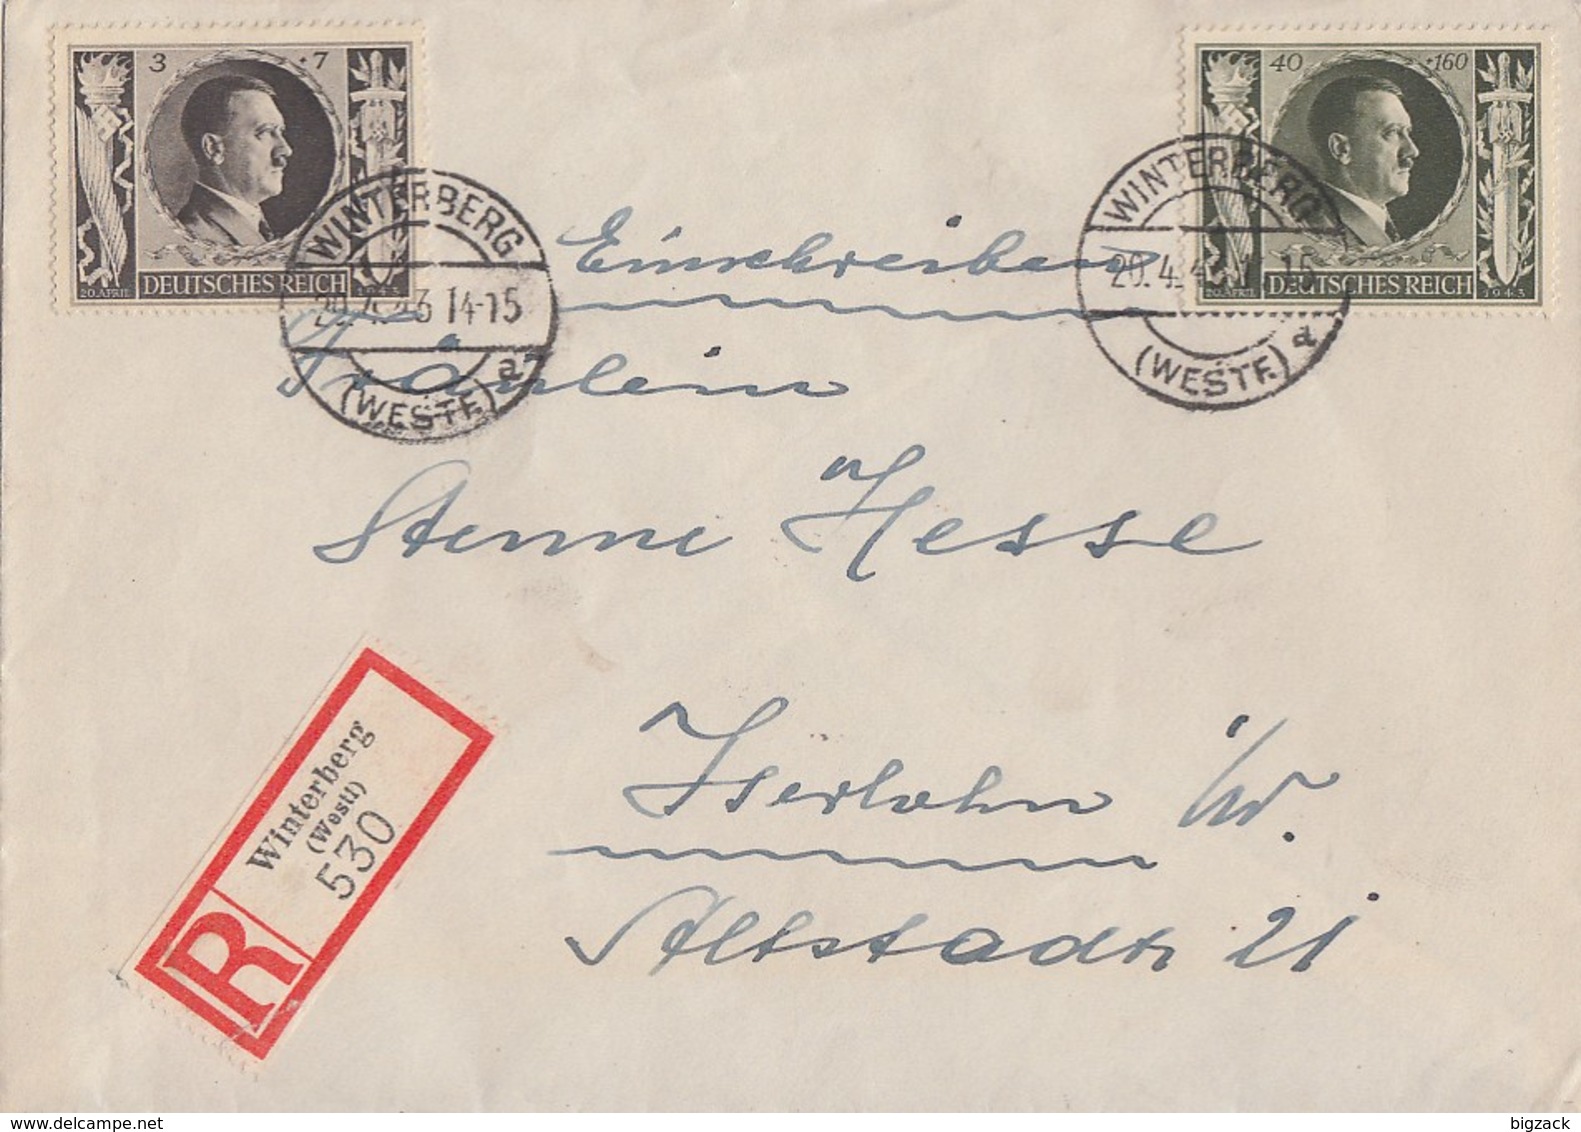 3 +7
DEUTSCHES REICH
20. APRIL 1943
40 +160
DEUTSCHES REICH
20. APRIL 1943
WINTERBERG
20.4.43 14-15
(WESTF.) a
WINTERBERG
20.4. 15
(WESTF.) a
Einschreiben
Fräulein
Hesse
Iserlohn i/W.
Altstadt 21
R
Winterberg
(Westf)
530
bigzack